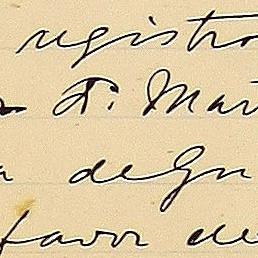 registro
F. Mar
a de Gu
favor de